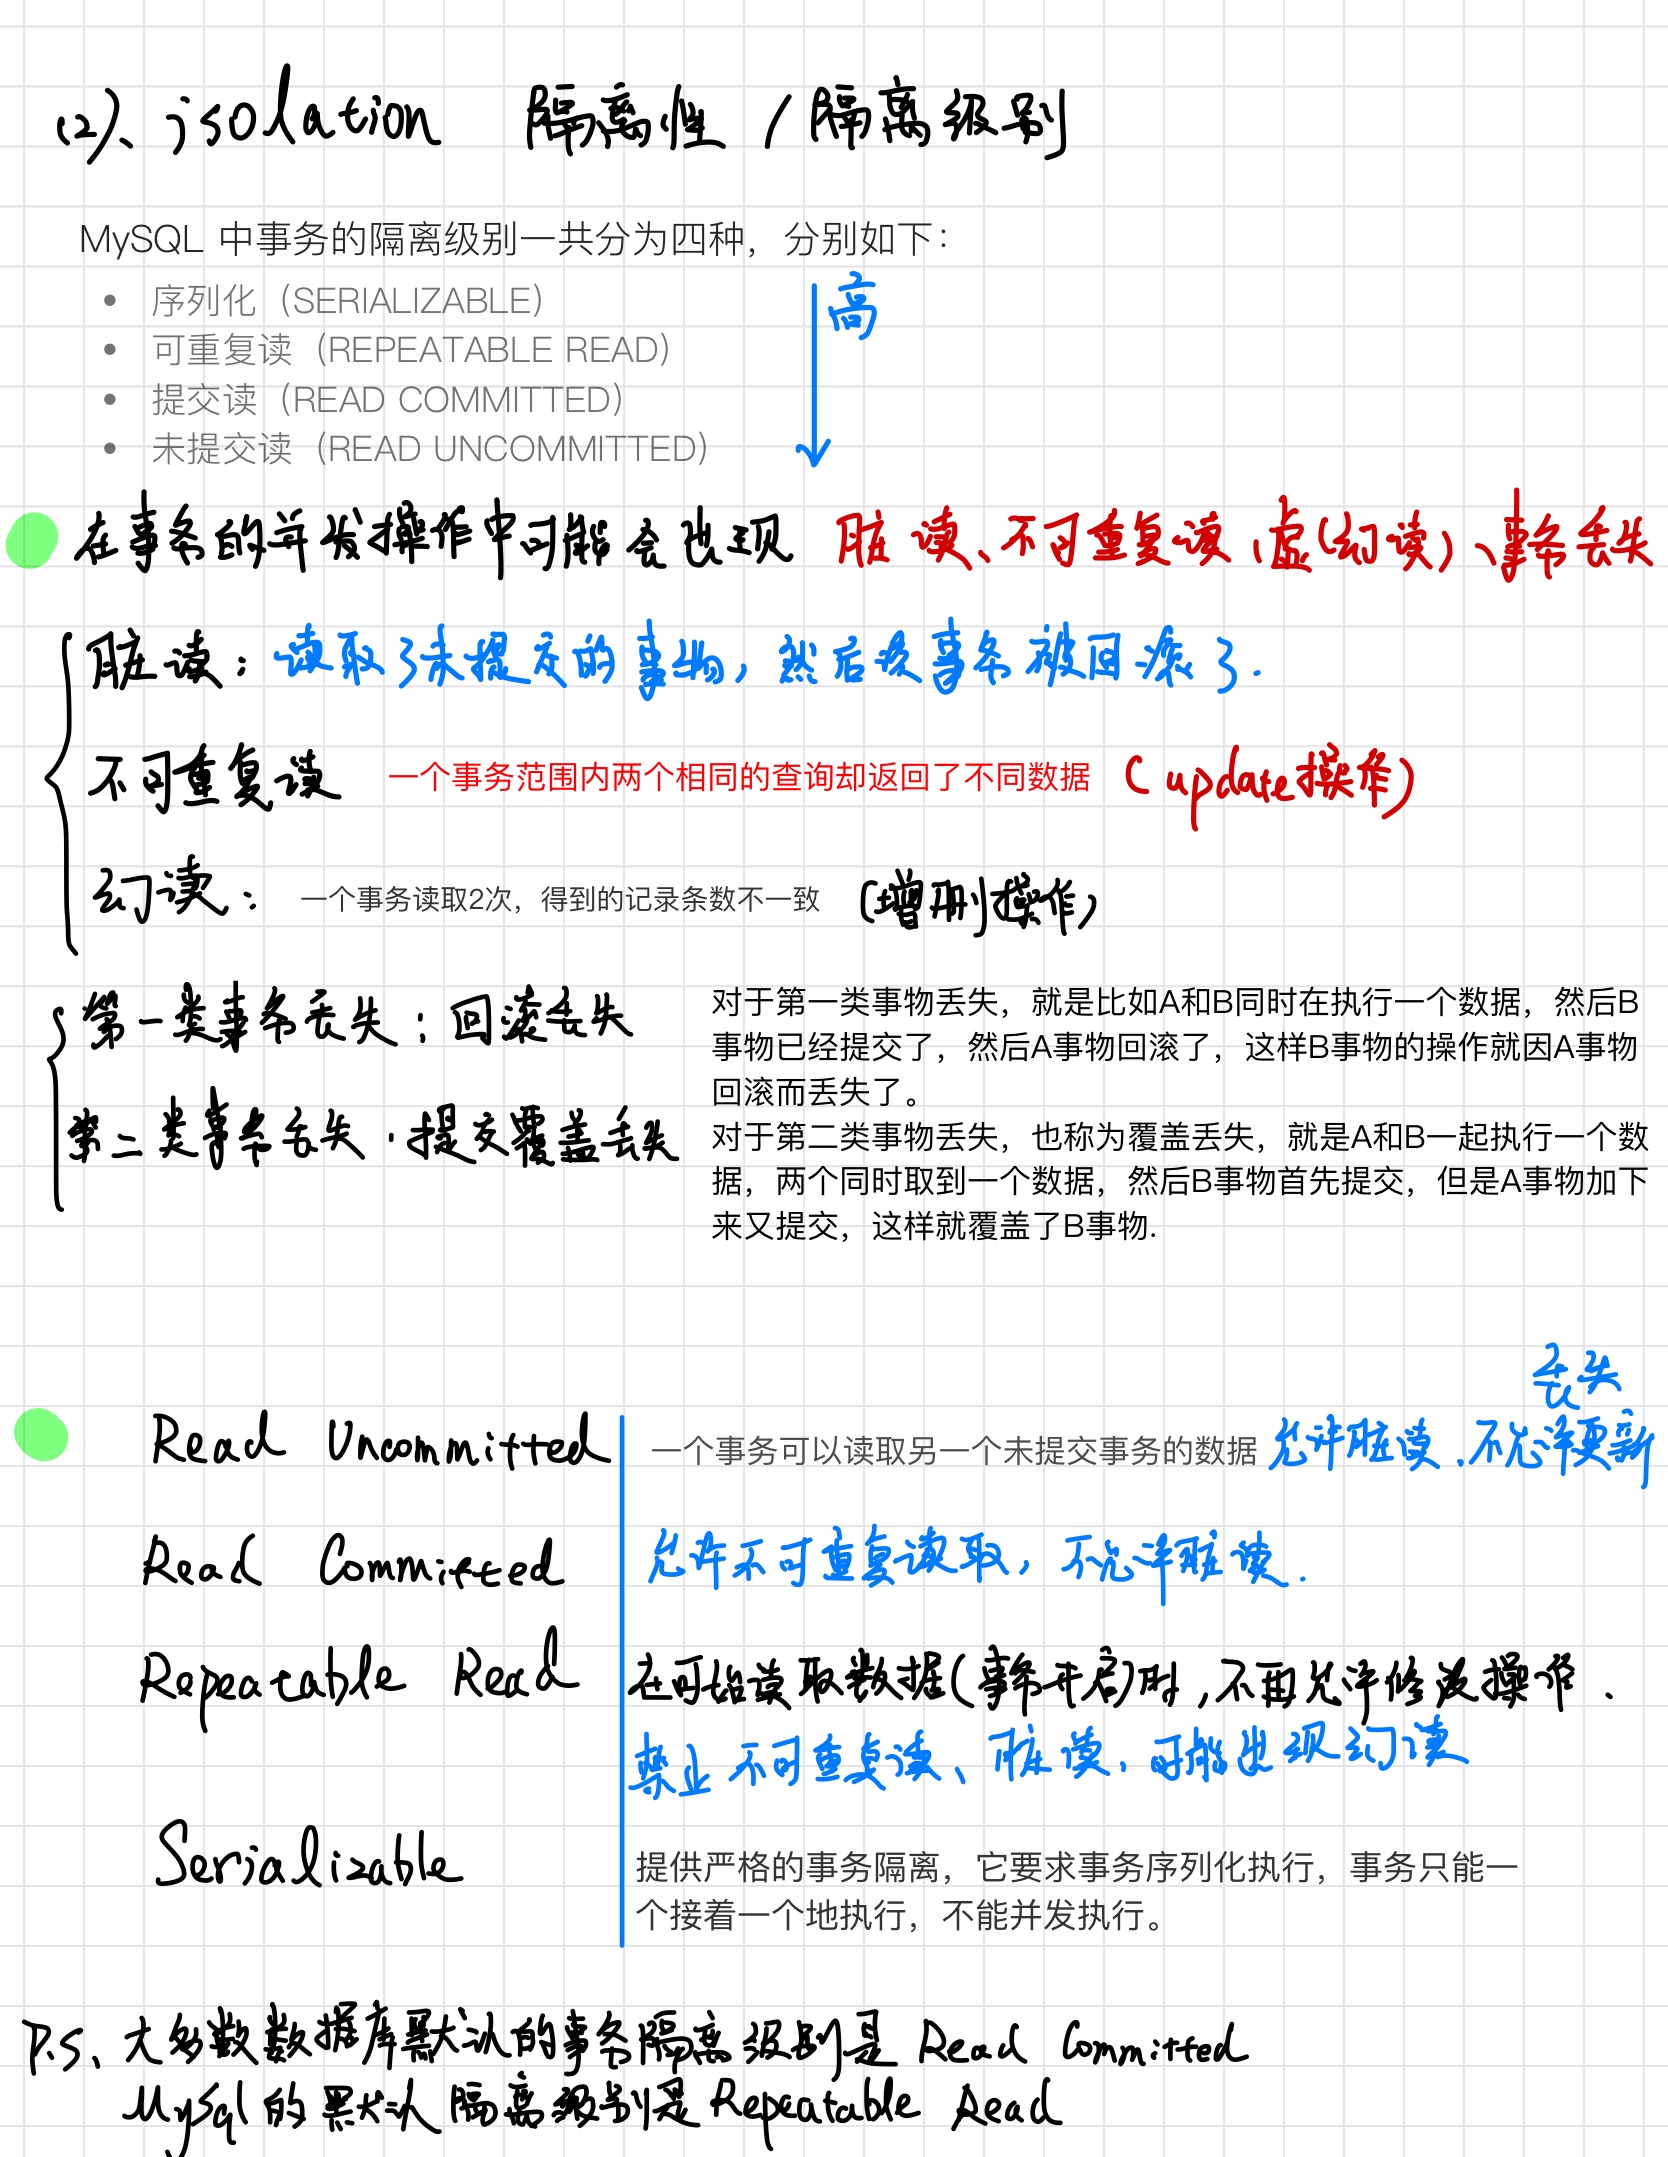 (2)、isolation 隔离性 / 隔离级别
MySQL 中事务的隔离级别一共分为四种，分别如下：
• 序列化（SERIALIZABLE）
高
• 可重复读（REPEATABLE READ）
• 提交读（READ COMMITTED）
• 未提交读（READ UNCOMMITTED）
在事务的并发操作中可能会出现 脏读、不可重复读、虚(幻读)、事务丢失
脏读：读取了未提交的事物，然后该事务被回滚了.
不可重复读 一个事务范围内两个相同的查询却返回了不同数据 (update操作)
幻读： 一个事务读取2次，得到的记录条数不一致 (增删操作)
第一类事务丢失：回滚丢失
第二类事务丢失·提交覆盖丢失
对于第一类事物丢失，就是比如A和B同时在执行一个数据，然后B
事物已经提交了，然后A事物回滚了，这样B事物的操作就因A事物
回滚而丢失了。
对于第二类事物丢失，也称为覆盖丢失，就是A和B一起执行一个数
据，两个同时取到一个数据，然后B事物首先提交，但是A事物加下
来又提交，这样就覆盖了B事物.
丢失
Read Uncommitted 一个事务可以读取另一个未提交事务的数据 允许脏读、不允许更新
Read Committed 允许不可重复读取，不允许脏读.
Repeatable Read 在可始读取数据(事务开启)时,不再允许修改操作.
禁止不可重复读、脏读,可能出现幻读
Serializable 提供严格的事务隔离，它要求事务序列化执行，事务只能一
个接着一个地执行，不能并发执行。
P.S、大多数数据库默认的事务隔离级别是 Read Committed
MySql 的默认隔离级别是 Repeatable Read